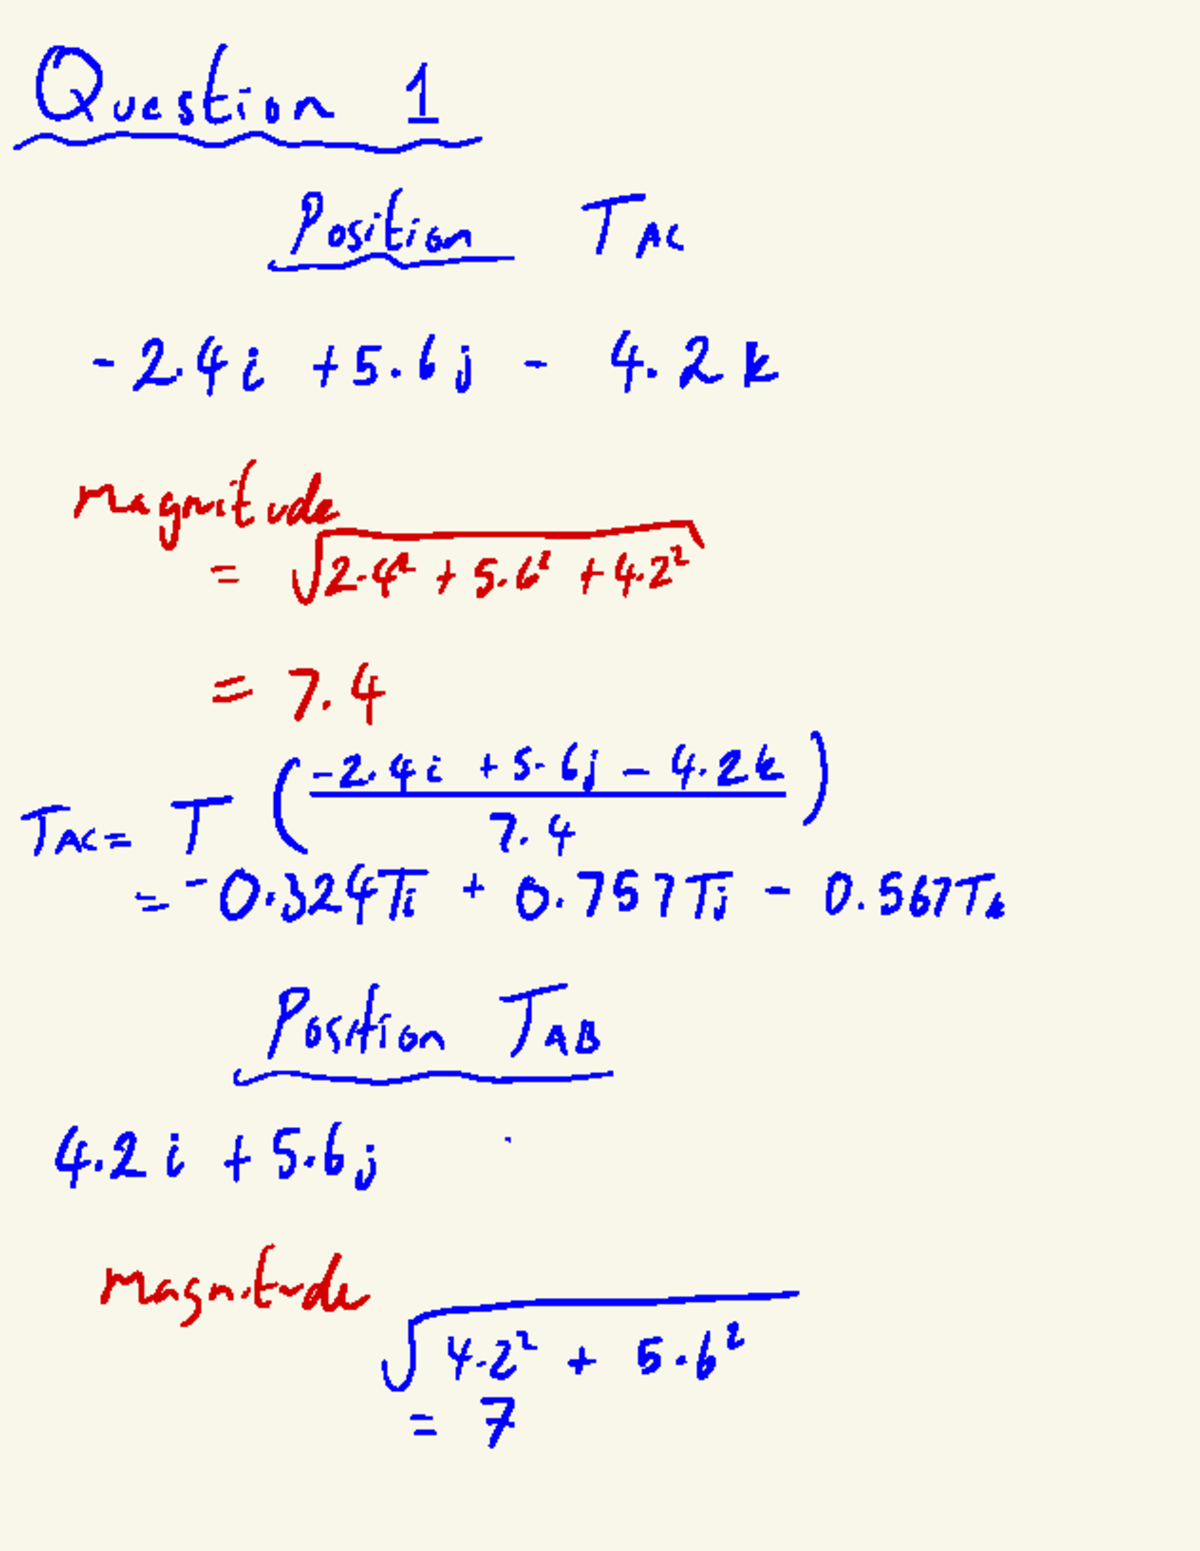 Question 1
Position TAC
-2.4i +5.6j - 4.2k
magnitude
= √2.4² + 5.6² + 4.2²
= 7.4
TAC = T (-2.4i + 5.6j - 4.2k / 7.4)
= -0.324Ti + 0.757Tj - 0.567Tk
Position TAB
4.2i + 5.6j
magnitude
√4.2² + 5.6²
= 7